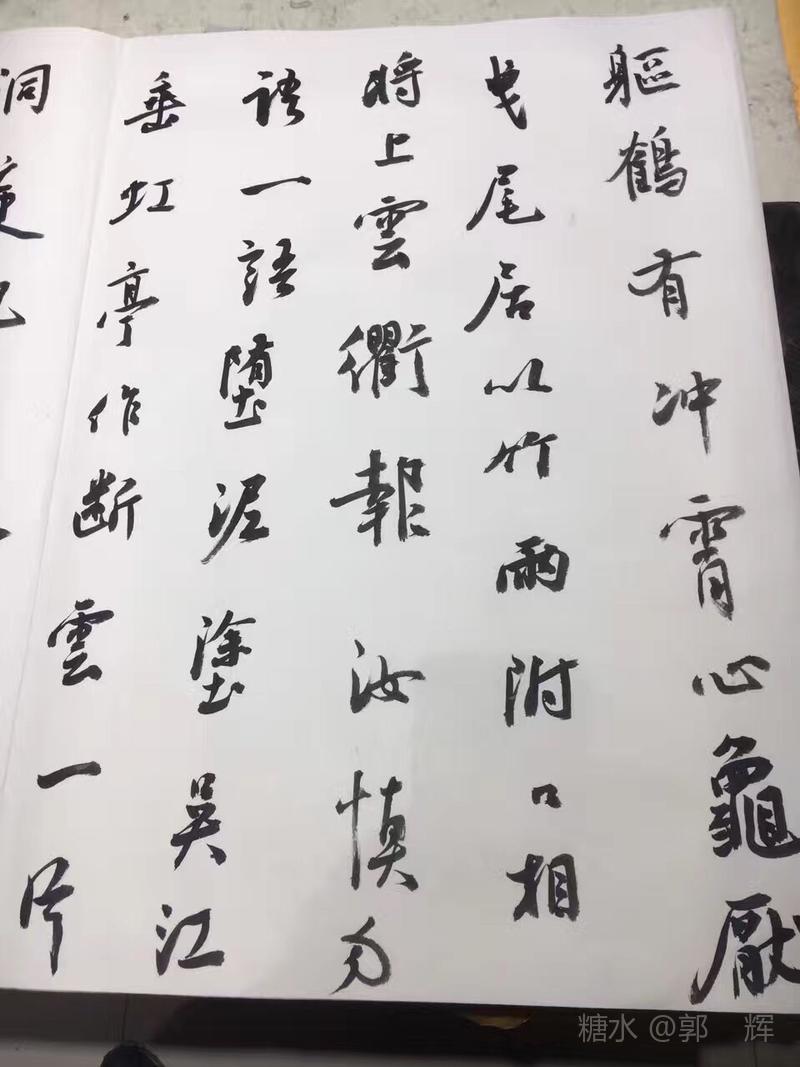 軀鶴有冲霄心龜厭
曳尾居以竹兩附口相
將上雲衢報汝慎勿
語一語墮泥塗吳江
垂虹亭作断雲一片
洞
糖水 @郭 辉